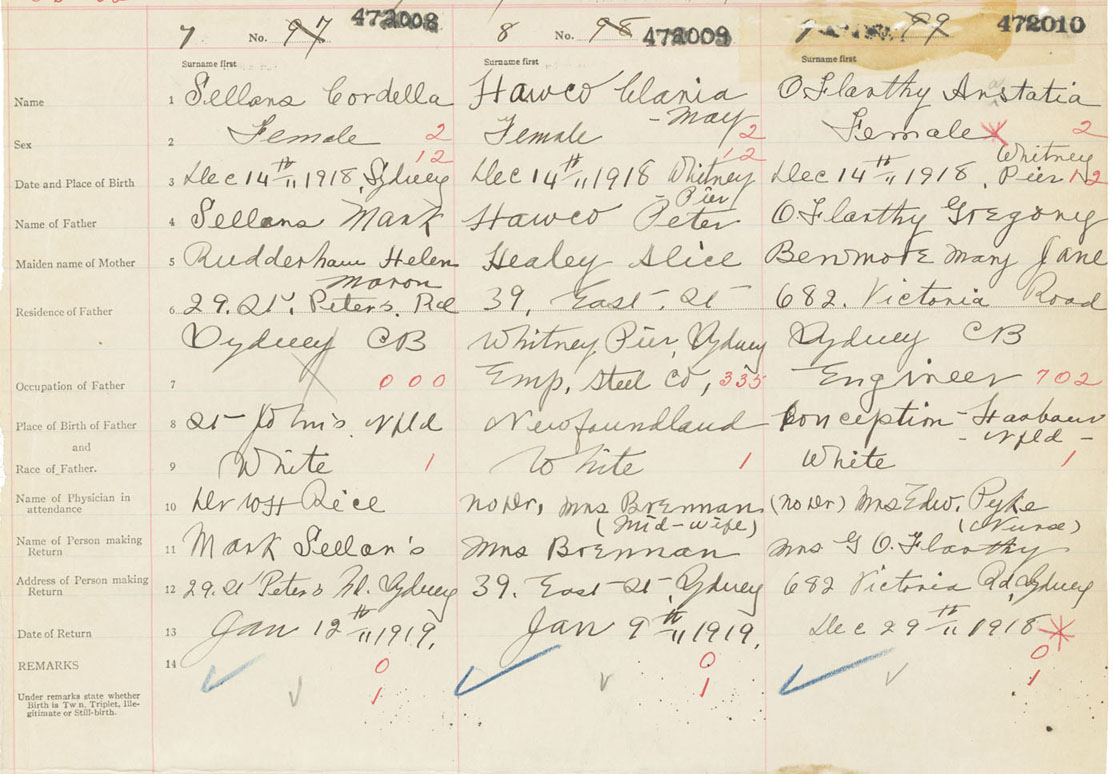 7 No. 97 472008
8 No. 98 472009
99 472010
Surname first Surname first Surname first
Name 1 Sellans Cordella Hawco Clania O Flanthy Anstatia
- May
Sex 2 Female 2 Female 2 Female 2
12 12 Whitney
Date and Place of Birth 3 Dec 14th " 1918, Sydney Dec 14th " 1918 Whitney Dec 14th " 1918, Pier 12
- Pier
Name of Father 4 Sellans Mark Hawco Peter O Flanthy Gregory
Maiden name of Mother 5 Rudderham Helen Healey Alice Benmore Mary Jane
Residence of Father 6 29. St. Peters. Rd 39, East. St 682. Victoria Road
Sydney CB Whitney Pier, Sydney Sydney CB
Occupation of Father 7 000 Emp, Steel Co, 335 Engineer 702
Place of Birth of Father 8 St John's. Nfld Newfoundland Conception - Harbour
and - Nfld -
Race of Father. 9 White 1 White 1 White 1
Name of Physician in
attendance 10 Dr WH Rice no Dr, Mrs Brennan (no Dr) Mrs Edw. Pyke
(Mid-wife) (Nurse)
Name of Person making
Return 11 Mark Sellan's Mrs Brennan Mrs G O. Flanthy
Address of Person making
Return 12 29. St Peters Rd. Sydney 39. East St, Sydney 682 Victoria Rd, Sydney
Date of Return 13 Jan 12th " 1919, Jan 9th " 1919, Dec 29th " 1918
REMARKS 14 0 0 0
Under remarks state whether
Birth is Twin, Triplet, Ille-
gitimate or Still-birth. 1 1 1